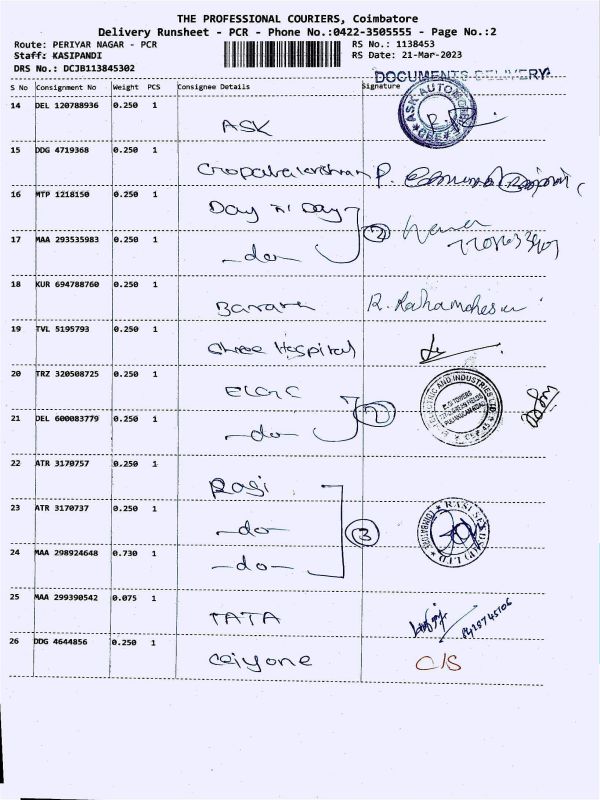 THE PROFESSIONAL COURIERS, Coimbatore
Delivery Runsheet - PCR - Phone No.:0422-3505555 - Page No.:2
Route: PERIYAR NAGAR - PCR RS No.: 1138453
Staff: KASIPANDI RS Date: 21-Mar-2023
DRS No.: DCJB113845302
DOCUMENTS DELIVERY
S No Consignment No Weight PCS Consignee Details Signature
14 DEL 120788936 0.250 1
ASK
ASK AUTOMO
15 DDG 4719368 0.250 1
Gopalakrishnan P.
16 MTP 1218150 0.250 1
Day n Day
2
17 MAA 293535983 0.250 1
-do-
18 KUR 694788760 0.250 1
Banara R.
19 TVL 5195793 0.250 1
Shree Hospital
20 TRZ 320508725 0.250 1
ELGI
ELECTRIC AND INDUSTRIES LTD
21 DEL 600083779 0.250 1
-do-
22 ATR 3170757 0.250 1
Rasi
23 ATR 3170737 0.250 1
-do-
3
24 MAA 298924648 0.730 1
-do-
25 MAA 299390542 0.075 1
TATA
26 DDG 4644856 0.250 1
Ceiyone C/S